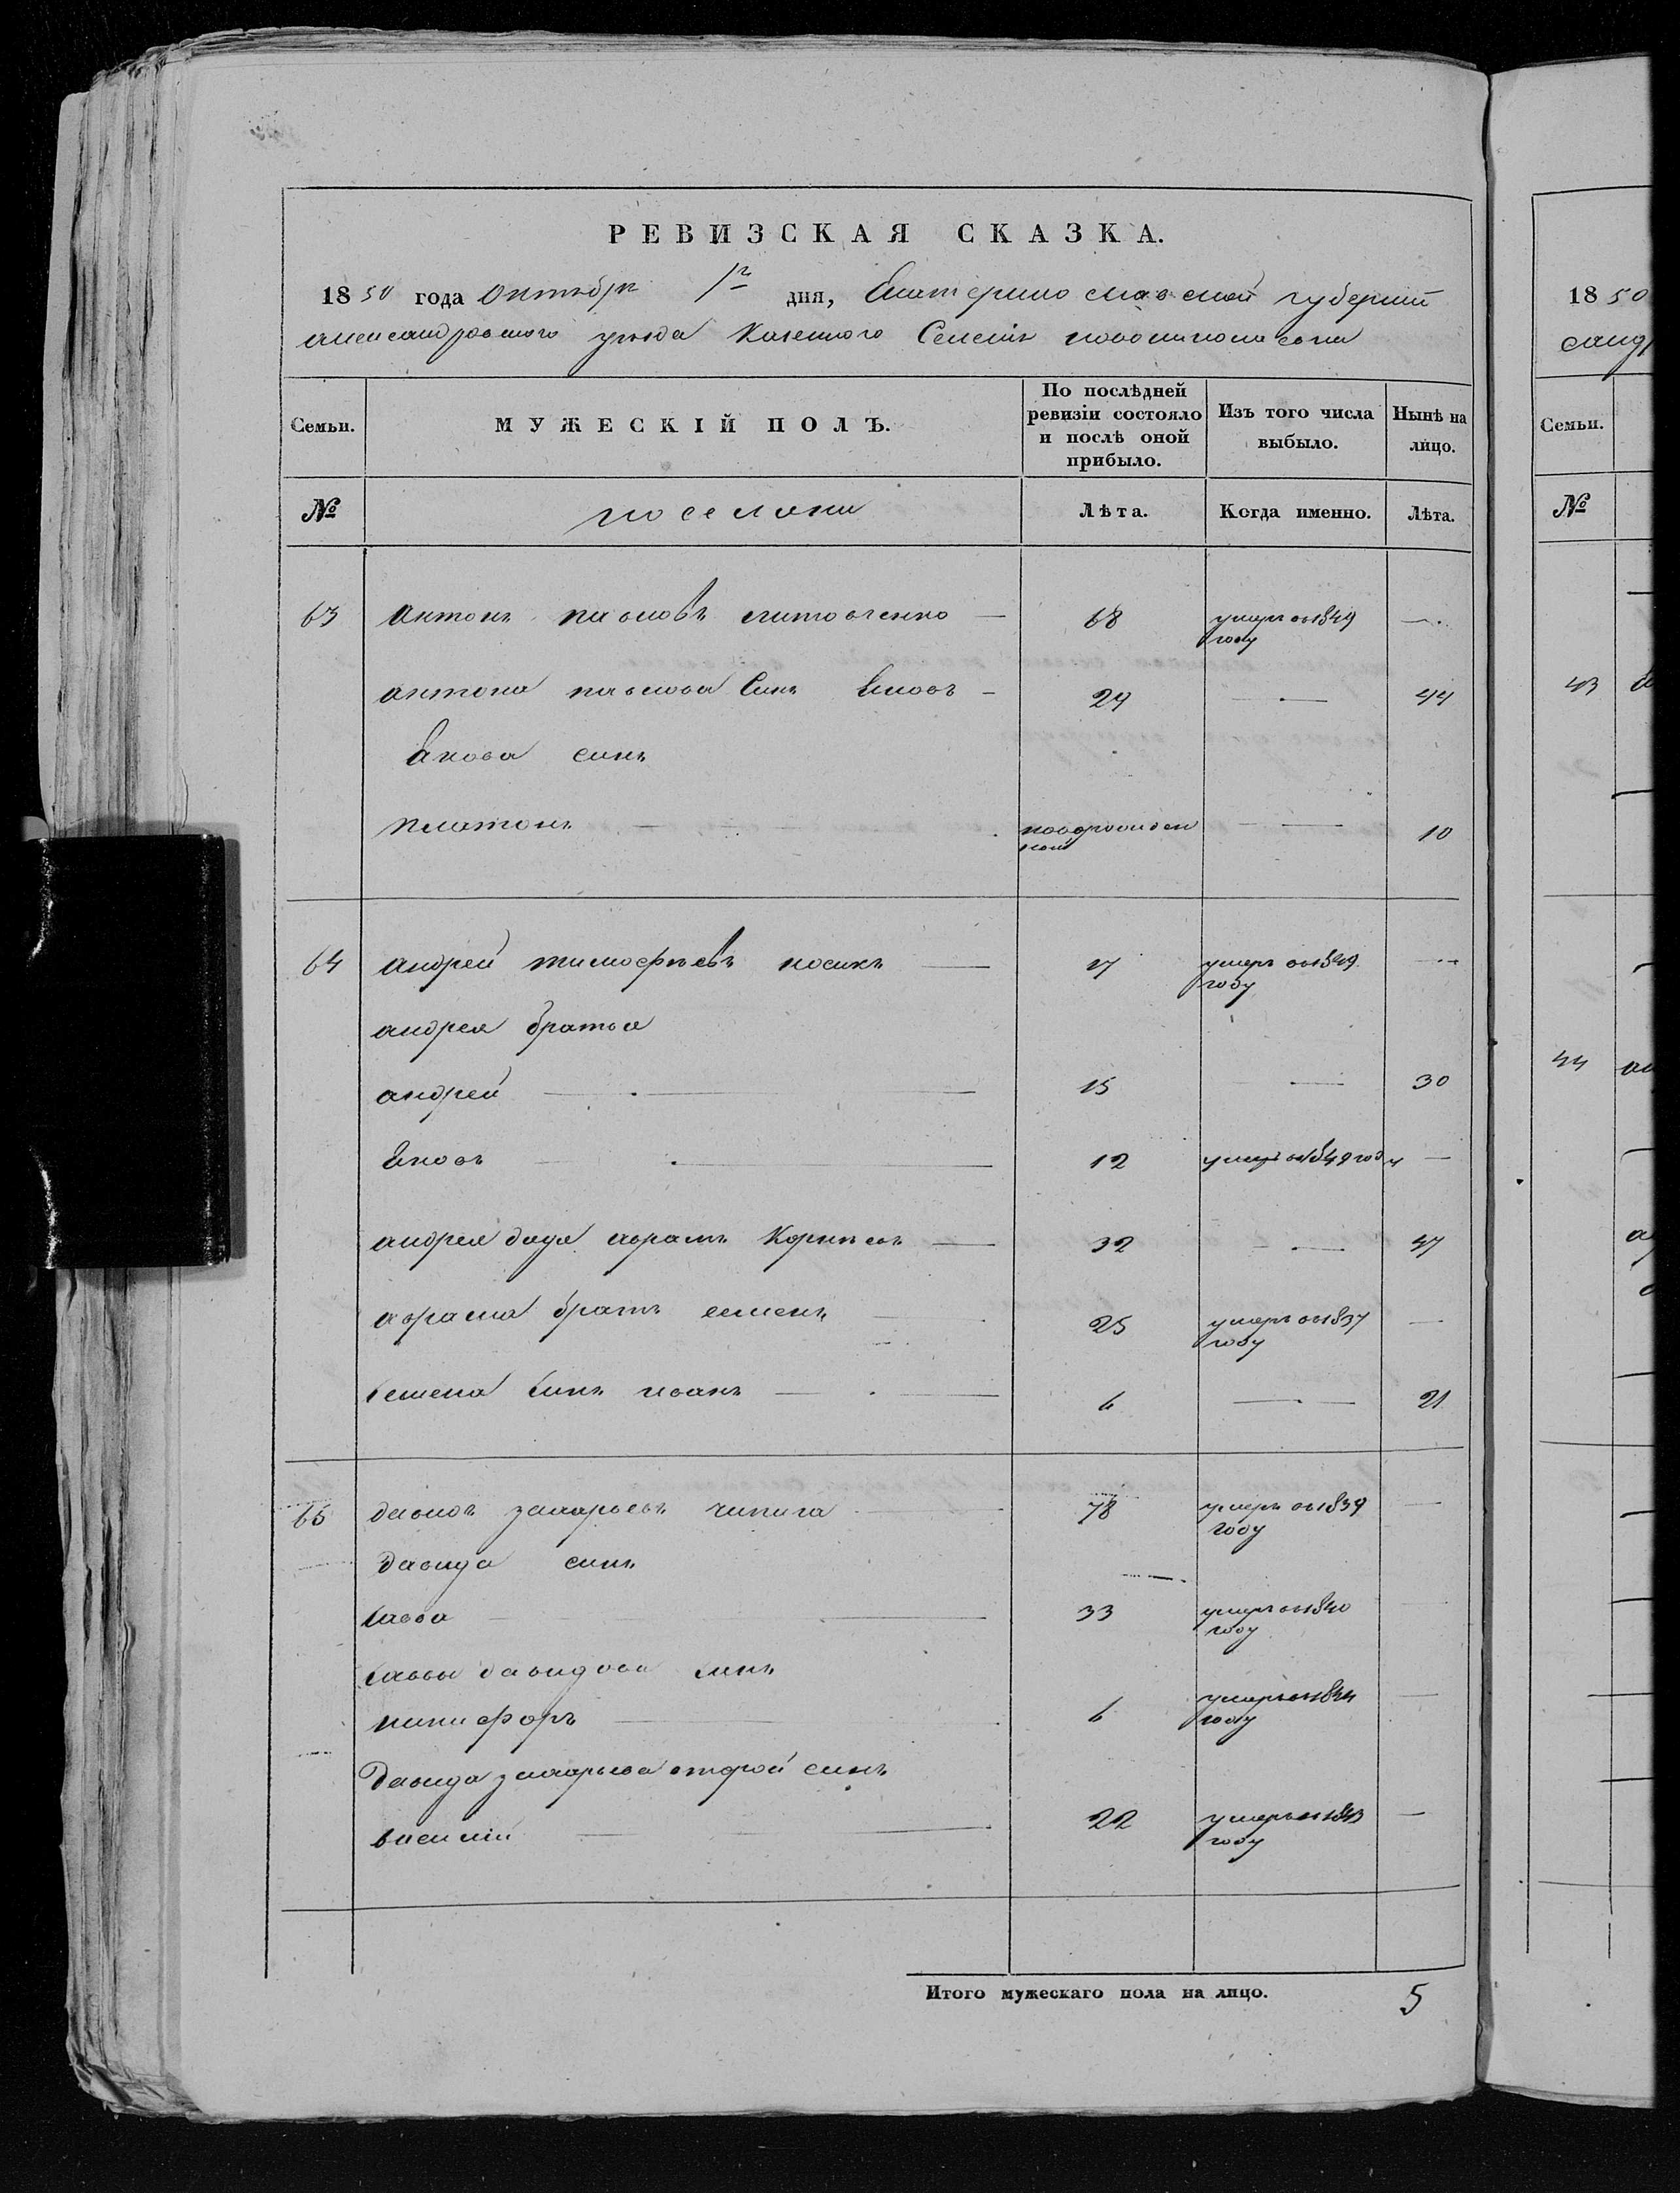 РЕВИЗСКАЯ СКАЗКА.
1850 года Октября 1го дня, Екатеринославской губернии
александровского уезда казенного Селения новониколаевки
Семьи. МУЖЕСКІЙ ПОЛЪ. По послѣдней ревизіи состояло и послѣ оной прибыло. Изъ того числа выбыло. Нынѣ на лицо.
№ поселяни Лѣта. Когда именно. Лѣта.
63 Антонъ павловъ литовченко — 68 умеръ въ 1849 году —
антона павлова Синъ Яковъ — 29 — 44
Якова синъ
платонъ — новорожденной — 10
64 андрей тимофѣевъ носикъ — 17 умеръ въ 1849 году —
андрея братья
андрей — 15 — 30
Яковъ — 12 умеръ в 1849 году —
андрея дядя аврамъ Корнѣевъ — 32 — 47
аврама братъ семенъ — 25 умеръ въ 1837 году —
Семена Синъ иванъ — 6 — 21
65 давидъ захарьевъ чипига — 78 умеръ въ 1839 году —
Давида синъ
Савва — 33 умеръ въ 1840 году —
Саввы давидова Синъ
никифоръ — 6 умеръ въ 1844 году —
Давида захарьева второй синъ
василій — 22 умеръ въ 1843 году —
Итого мужескаго пола на лицо. 5
1850
санд
Семьи.
№
43
44